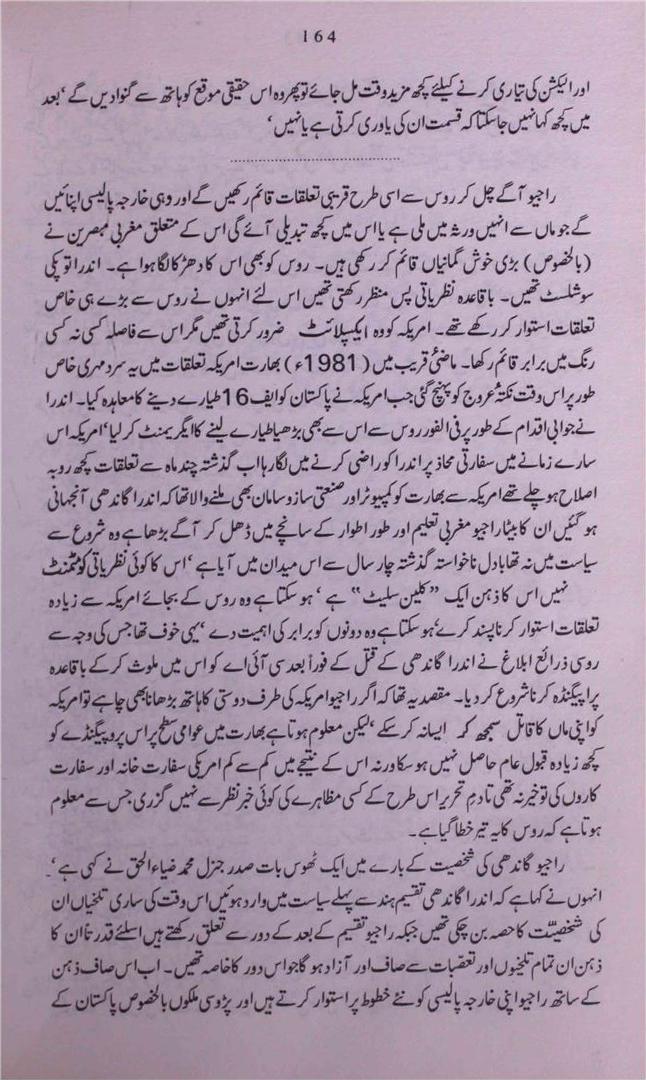 164
اور الیکشن کی تیاری کرنے کیلئے کچھ مزید وقت مل جائے تو پھر وہ اس حقیقی موقع کو ہاتھ سے گنوا دیں گے ‘ بعد
میں کچھ کہا نہیں جا سکتا کہ قسمت ان کی یاوری کرتی ہے یا نہیں ‘
راجیو آگے چل کر روس سے اسی طرح قریبی تعلقات قائم رکھیں گے اور وہی خارجہ پالیسی اپنائیں
گے جو ماں سے انہیں ورثہ میں ملی ہے یا اس میں کچھ تبدیلی آئے گی اس کے متعلق مغربی مبصرین نے
(بالخصوص) بڑی خوش گمانیاں قائم کر رکھی ہیں۔ روس کو بھی اس کا دھڑکا لگا ہوا ہے۔ اندرا تو پکی
سوشلسٹ تھیں۔ باقاعدہ نظریاتی پس منظر رکھتی تھیں اس لئے انہوں نے روس سے بڑے ہی خاص
تعلقات استوار کر رکھے تھے۔ امریکہ کو وہ ایکسپلائٹ ضرور کرتی تھیں مگر اس سے فاصلہ کسی نہ کسی
رنگ میں برابر قائم رکھا۔ ماضیٔ قریب میں (1981ء) بھارت امریکہ تعلقات میں یہ سرد مہری خاص
طور پر اس وقت نکتۂ عروج کو پہنچ گئی جب امریکہ نے پاکستان کو ایف 16 طیارے دینے کا معاہدہ کیا۔ اندرا
نے جوابی اقدام کے طور پر فی الفور روس سے اس سے بھی بڑھیا طیارے لینے کا ایگریمنٹ کر لیا ‘ امریکہ اس
سارے زمانے میں سفارتی محاذ پر اندرا کو راضی کرنے میں لگا رہا اب گذشتہ چند ماہ سے تعلقات کچھ روبہ
اصلاح ہو چلے تھے امریکہ سے بھارت کو کمپیوٹر اور صنعتی ساز و سامان بھی ملنے والا تھا کہ اندرا گاندھی آنجہانی
ہو گئیں ان کا بیٹا راجیو مغربی تعلیم اور طور اطوار کے سانچے میں ڈھل کر آگے بڑھا ہے وہ شروع سے
سیاست میں نہ تھا بادل ناخواستہ گذشتہ چار سال سے اس میدان میں آیا ہے ‘ اس کا کوئی نظریاتی کومٹمنٹ
نہیں اس کا ذہن ایک ”کلین سلیٹ“ ہے ‘ ہو سکتا ہے وہ روس کے بجائے امریکہ سے زیادہ
تعلقات استوار کرنا پسند کرے ‘ ہو سکتا ہے وہ دونوں کو برابر کی اہمیت دے ‘ یہی خوف تھا جس کی وجہ سے
روسی ذرائع ابلاغ نے اندرا گاندھی کے قتل کے فوراً بعد سی آئی اے کو اس میں ملوث کر کے باقاعدہ
پراپیگنڈہ کرنا شروع کر دیا۔ مقصد یہ تھا کہ اگر راجیو امریکہ کی طرف دوستی کا ہاتھ بڑھانا بھی چاہے تو امریکہ
کو اپنی ماں کا قاتل سمجھ کر ایسا نہ کر سکے ‘ لیکن معلوم ہوتا ہے بھارت میں عوامی سطح پر اس پروپیگنڈے کو
کچھ زیادہ قبول عام حاصل نہیں ہو سکا ورنہ اس کے نتیجے میں کم سے کم امریکی سفارت خانہ اور سفارت
کاروں کی تو خیر نہ تھی تادمِ تحریر اس طرح کے کسی مظاہرے کی کوئی خبر نظر سے نہیں گزری جس سے معلوم
ہوتا ہے کہ روس کا یہ تیر خطا گیا ہے۔
راجیو گاندھی کی شخصیت کے بارے میں ایک ٹھوس بات صدر جنرل محمد ضیاء الحق نے کہی ہے ‘
انہوں نے کہا ہے کہ اندرا گاندھی تقسیم ہند سے پہلے سیاست میں وارد ہوئیں اس وقت کی ساری تلخیاں ان
کی شخصیّت کا حصہ بن چکی تھیں جبکہ راجیو تقسیم کے بعد کے دور سے تعلق رکھتے ہیں اسلئے قدرتاً ان کا
ذہن ان تمام تلخیوں اور تعصّبات سے صاف اور آزاد ہو گا جو اس دور کا خاصہ تھیں۔ اب اس صاف ذہن
کے ساتھ راجیو اپنی خارجہ پالیسی کو نئے خطوط پر استوار کرتے ہیں اور پڑوسی ملکوں بالخصوص پاکستان کے